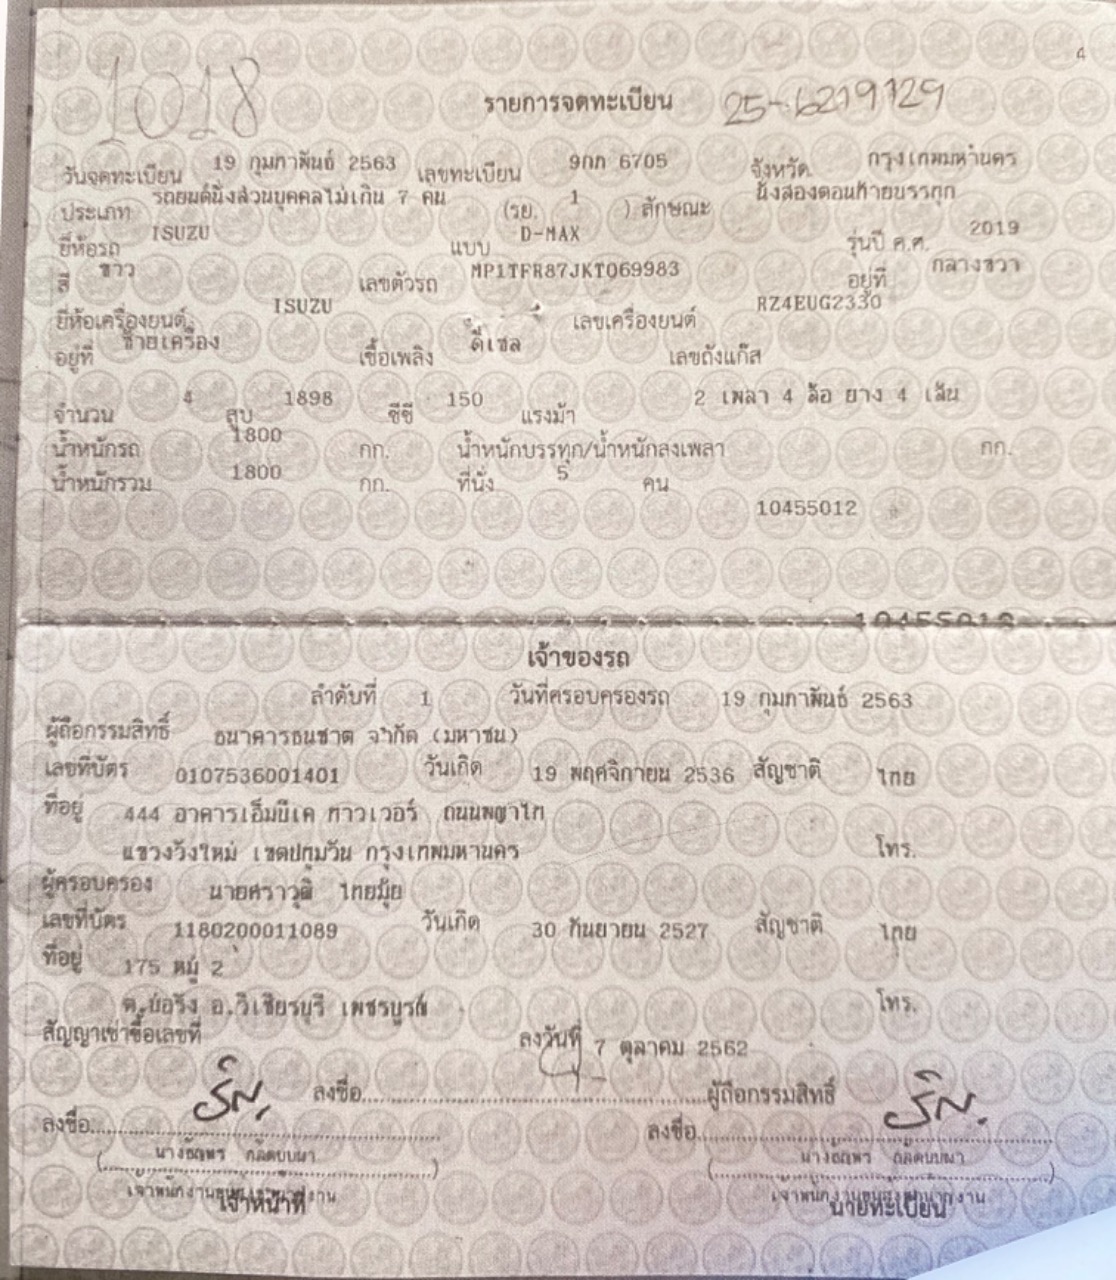 4
1018
รายการจดทะเบียน 25-6219129
วันจดทะเบียน 19 กุมภาพันธ์ 2563 เลขทะเบียน 9กก 6705 จังหวัด กรุงเทพมหานคร
ประเภท รถยนต์นั่งส่วนบุคคลไม่เกิน 7 คน (รย. 1 ) ลักษณะ นั่งสองตอนท้ายบรรทุก
ยี่ห้อรถ ISUZU แบบ D-MAX รุ่นปี ค.ศ. 2019
สี ขาว เลขตัวรถ MP1TFR87JKT069983 อยู่ที่ กลางขวา
ยี่ห้อเครื่องยนต์ ISUZU เลขเครื่องยนต์ RZ4EUG2330
อยู่ที่ ซ้ายเครื่อง เชื้อเพลิง ดีเซล เลขถังแก๊ส
จำนวน 4 สูบ 1898 ซีซี 150 แรงม้า 2 เพลา 4 ล้อ ยาง 4 เส้น
น้ำหนักรถ 1800 กก. น้ำหนักบรรทุก/น้ำหนักลงเพลา กก.
น้ำหนักรวม 1800 กก. ที่นั่ง 5 คน
10455012
เจ้าของรถ
ลำดับที่ 1 วันที่ครอบครองรถ 19 กุมภาพันธ์ 2563
ผู้ถือกรรมสิทธิ์ ธนาคารธนชาต จำกัด (มหาชน)
เลขที่บัตร 0107536001401 วันเกิด 19 พฤศจิกายน 2536 สัญชาติ ไทย
ที่อยู่ 444 อาคารเอ็มบีเค ทาวเวอร์ ถนนพญาไท
แขวงวังใหม่ เขตปทุมวัน กรุงเทพมหานคร โทร.
ผู้ครอบครอง นายศราวุฒิ ไทยมุ้ย
เลขที่บัตร 1180200011089 วันเกิด 30 กันยายน 2527 สัญชาติ ไทย
ที่อยู่ 175 หมู่ 2
ต.บ่อรัง อ.วิเชียรบุรี เพชรบูรณ์ โทร.
สัญญาเช่าซื้อเลขที่ ลงวันที่ 7 ตุลาคม 2562
ลงชื่อ ผู้ถือกรรมสิทธิ์
ลงชื่อ ลงชื่อ
เจ้าหน้าที่ นายทะเบียน